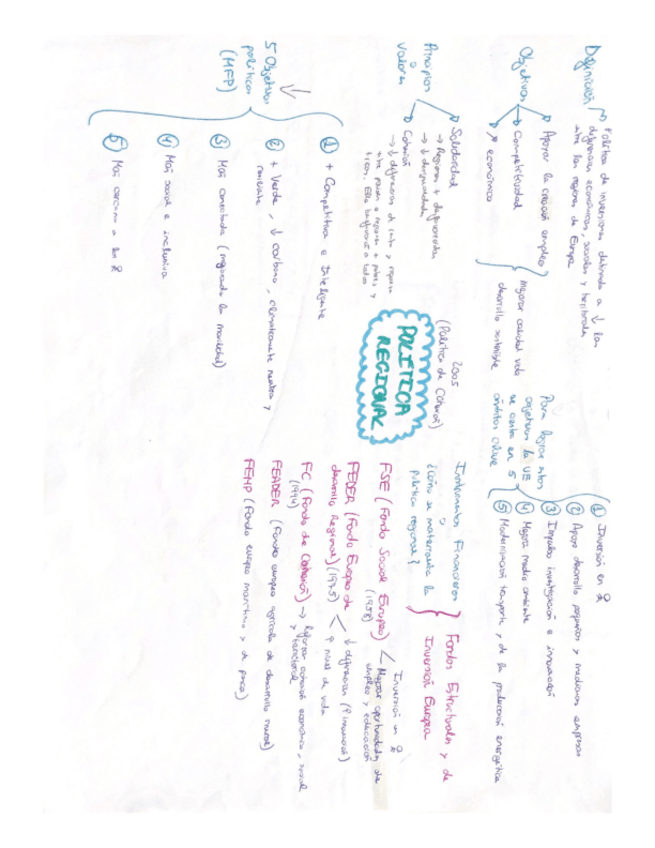 Definición
Política de inversiones destinada a ↓ las
diferencias económicas, sociales y territoriales
entre las regiones de Europa
Objetivos
Apoyar la creación empleo
Competitividad
económico
Mejorar calidad vida
desarrollo sostenible
Para lograr estos
objetivos la UE
se centra en 5
ámbitos clave
① Inversión en
② Apoyo desarrollo pequeñas y medianas empresas
③ Impulso investigación e innovación
④ Mejora medio ambiente
⑤ Modernización transporte y de la producción energética
Principios
y
valores
Solidaridad
→ Regiones + desfavorecidas
→ ↓ desigualdades
Cohesión
→ ↓ diferencias de
2005
(Política de Cohesión)
POLÍTICA
REGIONAL
Instrumentos Financieros
¿Cómo se materializa la
política regional?
Fondos Estructurales y de
Inversión Europea
FSE (Fondo Social Europeo)
(1958)
Inversión en
Mejorar oportunidades de
empleo y educación
FEDER (Fondo Europeo de
desarrollo Regional) (1975)
↓ diferencias
↑ nivel de vida
FC (Fondo de Cohesión) → Reforzar cohesión económica, social
(1994) y territorial
FEADER (Fondo europeo agrícola de desarrollo rural)
FEMP (Fondo europeo marítimo y de pesca)
5 Objetivos
políticos
(MFP)
① + Competitiva e Inteligente
② + Verde, ↓ carbono, climáticamente neutra y
resiliente
③ Más conectada (mejorando la movilidad)
④ Más social e inclusiva
⑤ Más cercana a los